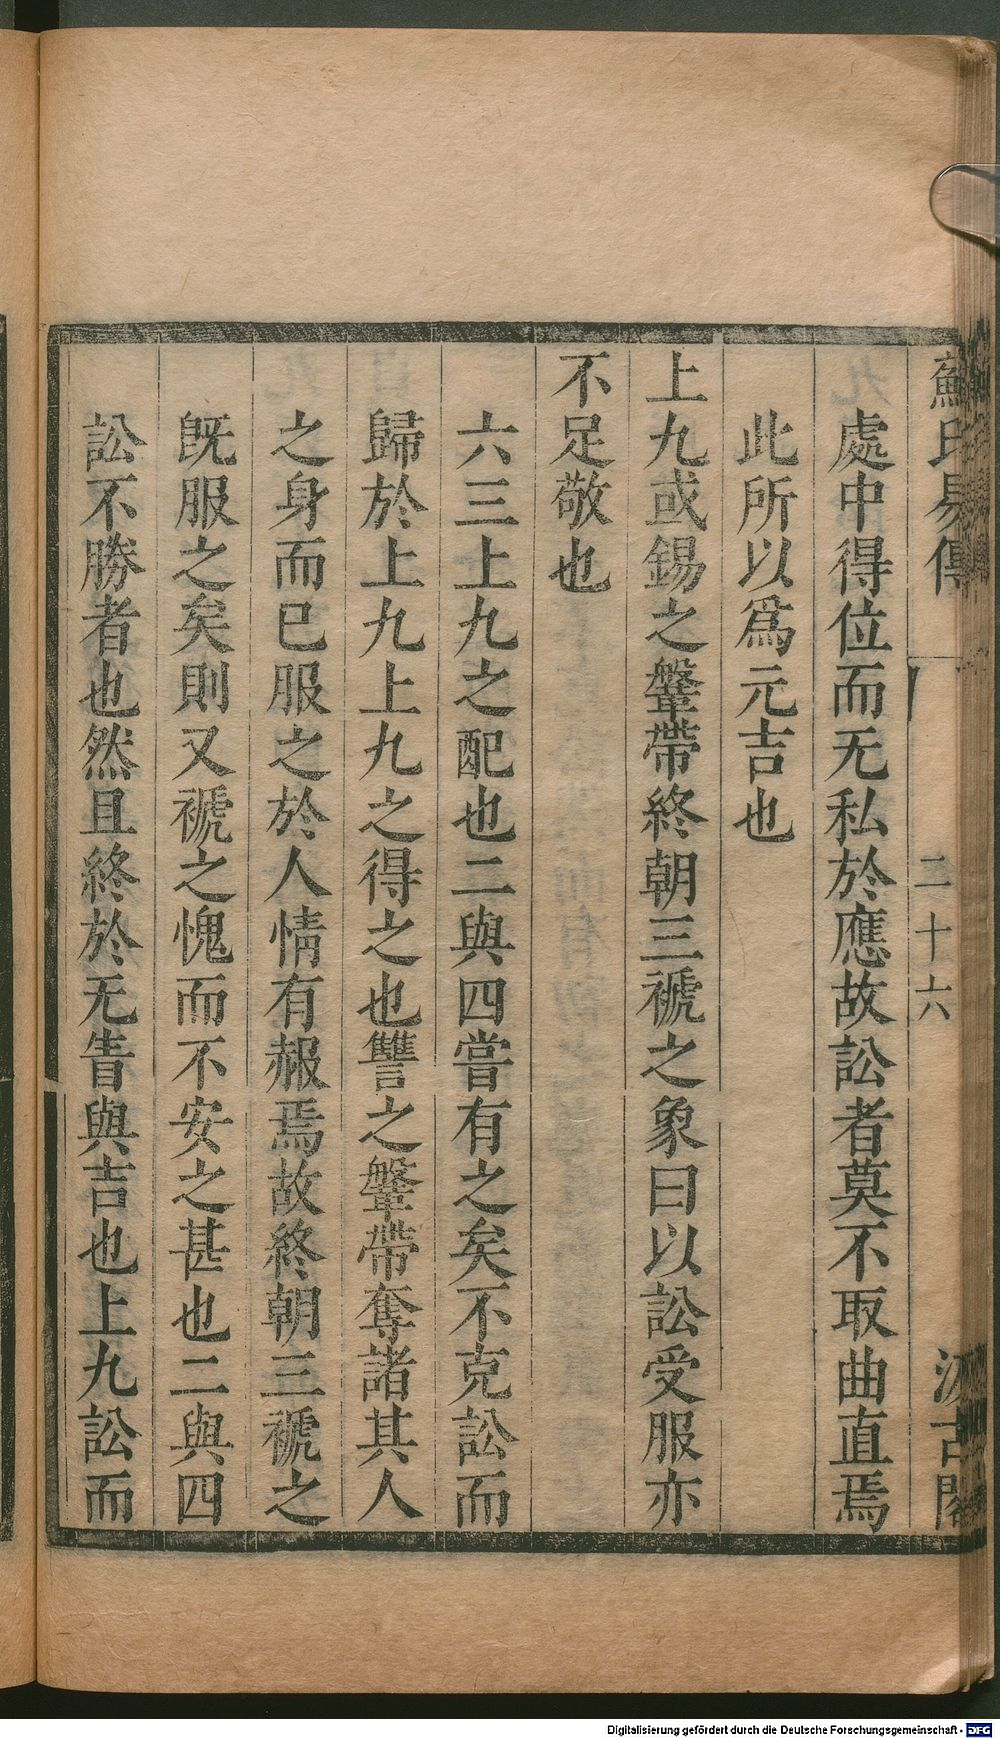 蘇氏易傳 二十六 汲古閣
處中得位而无私於應故訟者莫不取曲直焉
此所以爲元吉也
上九或錫之鞶帶終朝三褫之象曰以訟受服亦
不足敬也
六三上九之配也二與四嘗有之矣不克訟而
歸於上九上九之得之也讐之鞶帶奪諸其人
之身而已服之於人情有赧焉故終朝三褫之
旣服之矣則又褫之愧而不安之甚也二與四
訟不勝者也然且終於无眚與吉也上九訟而
Digitalisierung gefördert durch die Deutsche Forschungsgemeinschaft - DFG